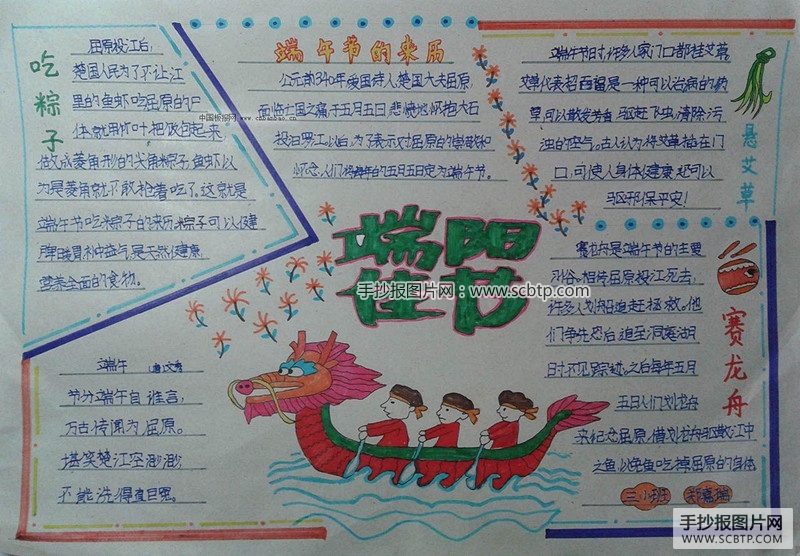 吃粽子
屈原投江后,
楚国人民为了不让江
里的鱼虾吃屈原的尸
体就用竹叶把饭包起来
做成菱角形的尖角粽子,鱼虾以
为是菱角就不敢抢着吃了,这就是
端午节吃粽子的来历.粽子可以健
脾暖胃补中益气,是天然健康,
营养全面的食物。
端午节的来历
公元前340年爱国诗人楚国大夫屈原,
面临亡国之痛于五月五日悲愤地怀抱大石
投汨罗江以后,为了表示对屈原的崇敬和
怀念,人们将每年的五月五日定为端午节。
悬艾草
端午节时,许多人家门口都挂艾草,
艾草代表招百福是一种可以治病的药
草,可以散发芳香 驱赶飞虫,清除污
浊的空气。古人认为将艾草插在门
口,可使人身体健康,还可以
驱邪保平安!
端阳
佳节
手抄报图片网:www.scbtp.com
端午 (唐)文秀
节分端午自谁言,
万古传闻为屈原。
堪笑楚江空渺渺
不能洗得直臣冤。
赛龙舟
赛龙舟是端午节的主要
习俗.相传屈原投江死去,
许多人划船追赶拯救。他
们争先恐后,追至洞庭湖
时不见踪迹。之后每年五月
五日人们划龙舟
来纪念屈原,借划龙舟驱散江中
之鱼,以免鱼吃掉屈原的身体
三小班
手抄报图片网
WWW.SCBTP.COM